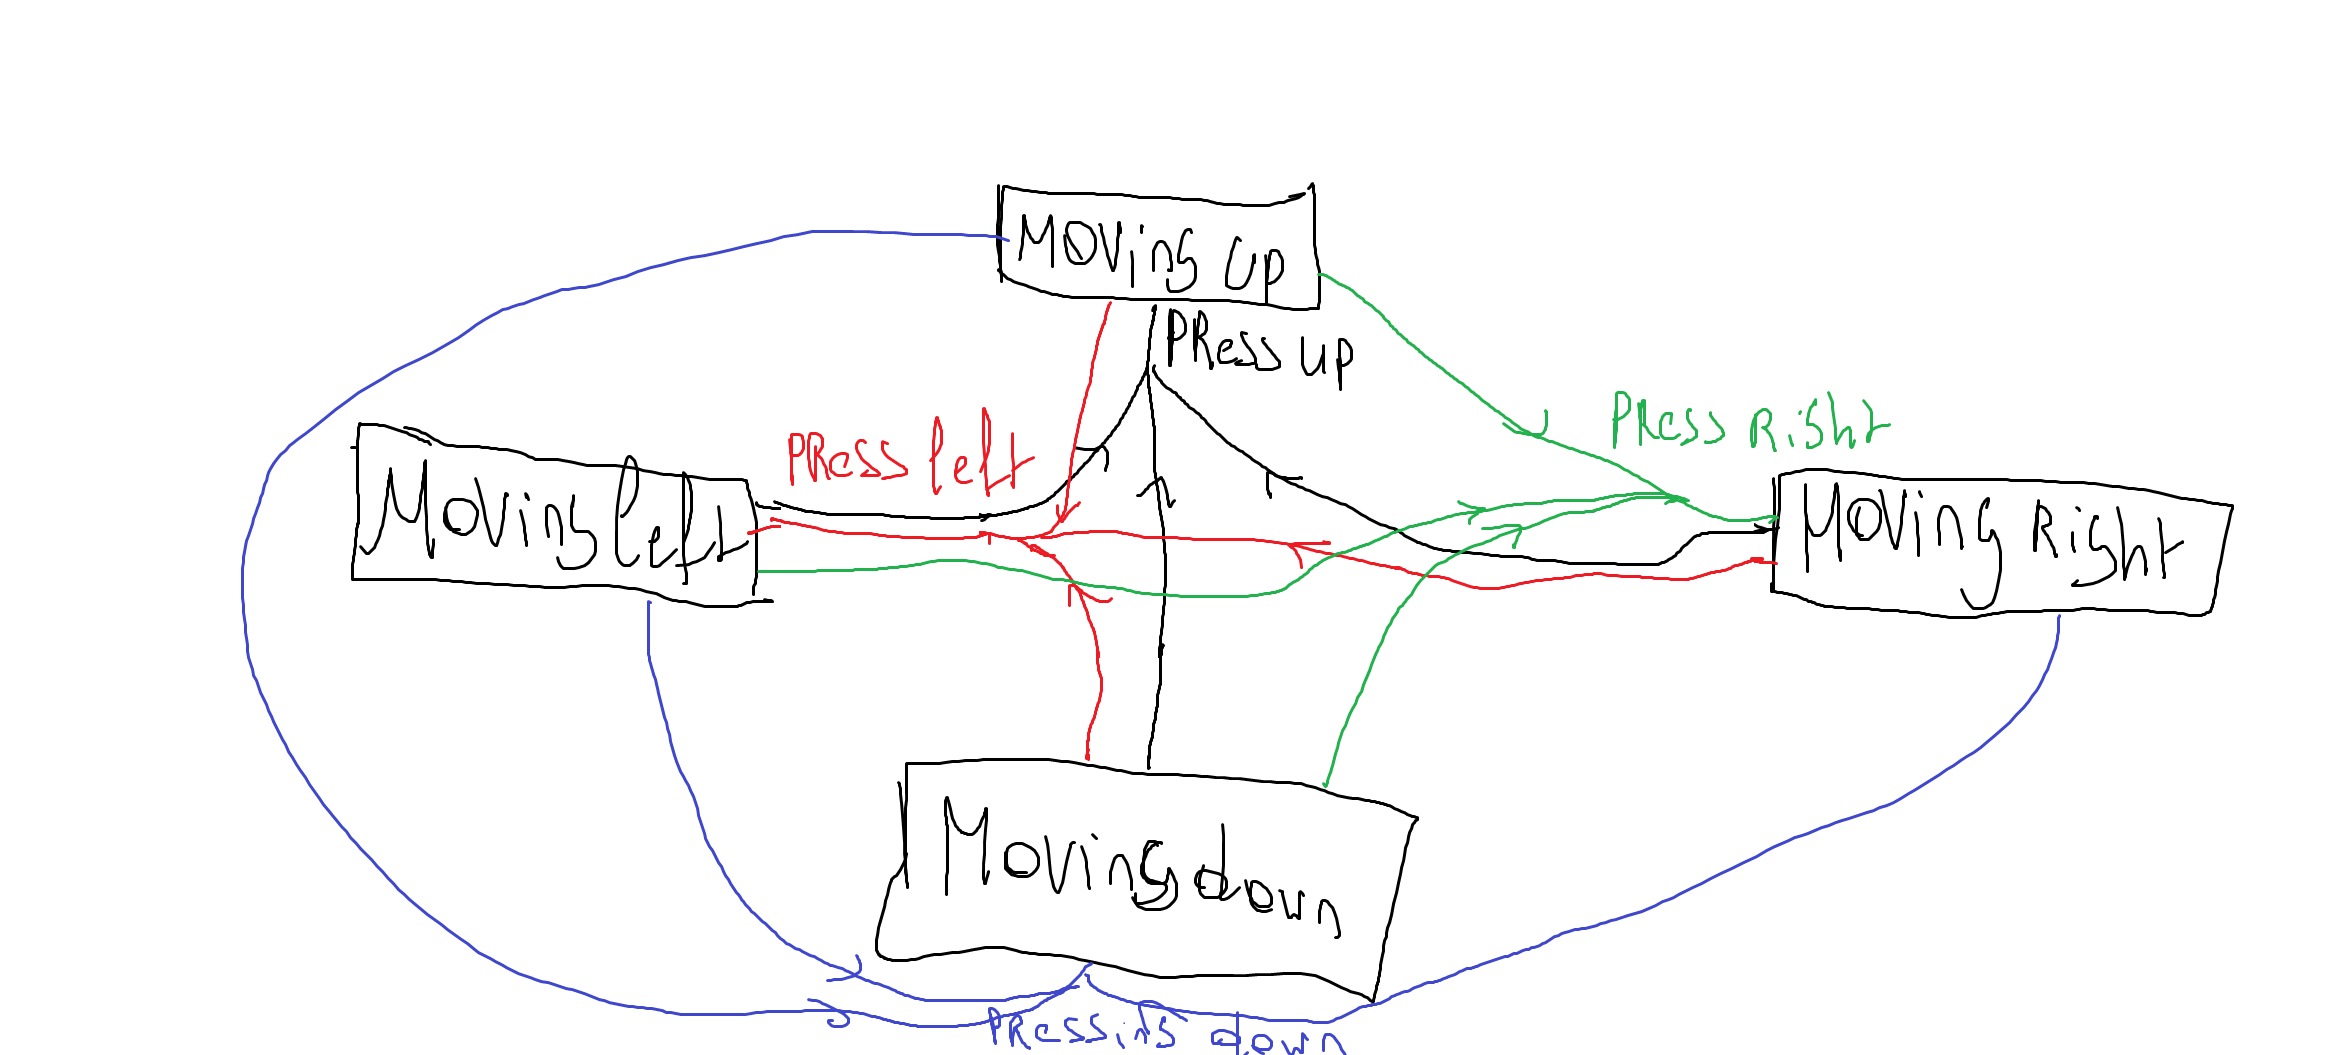 Moving up
Press up
Press left
Press Right
Moving left
Moving Right
Moving down
Pressing down